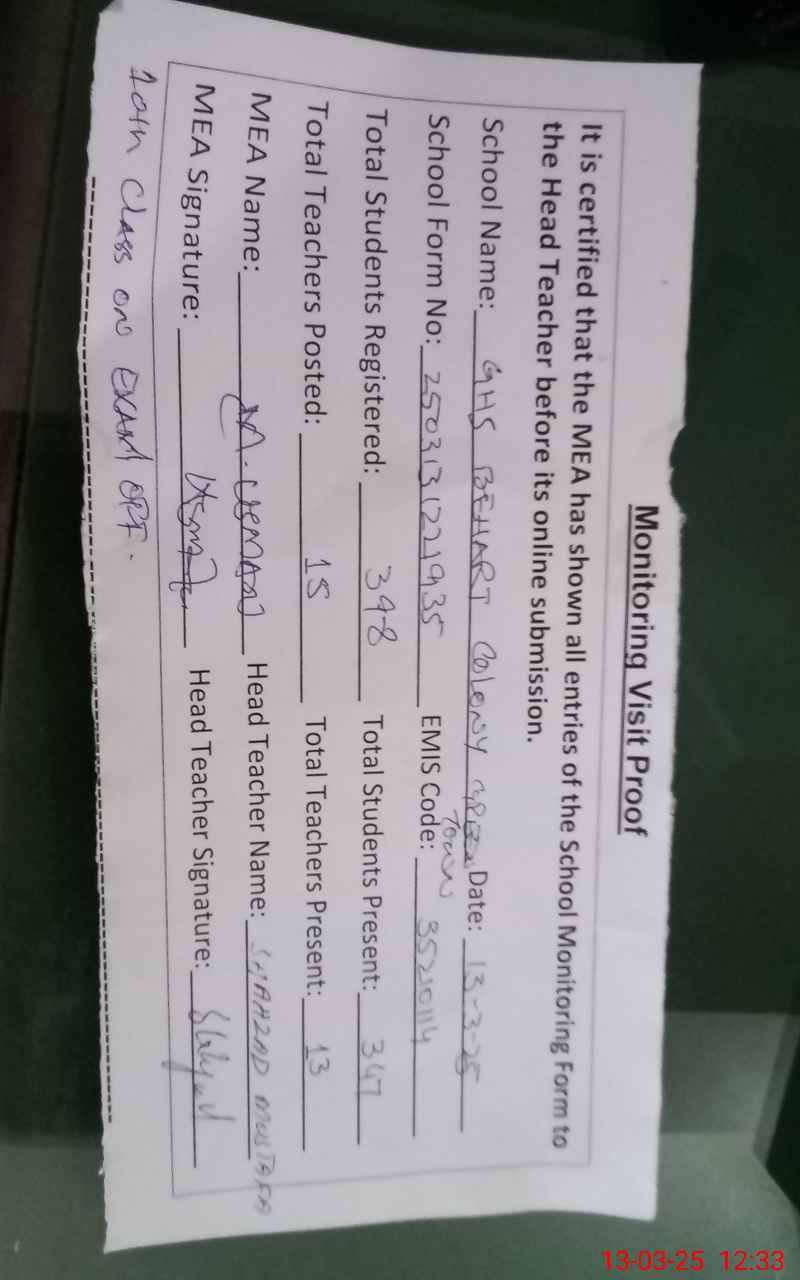 Monitoring Visit Proof
It is certified that the MEA has shown all entries of the School Monitoring Form to
the Head Teacher before its online submission.
School Name: GHS BEHARI COLONY GREEN TOWN Date: 13-3-25
School Form No: 2503131221935 EMIS Code: 35210114
Total Students Registered: 398 Total Students Present: 347
Total Teachers Posted: 15 Total Teachers Present: 13
MEA Name: M. USMAN Head Teacher Name: SHAHZAD MUSTAFA
MEA Signature: Usman Head Teacher Signature:
10th Class on EXAM
13-03-25 12:33